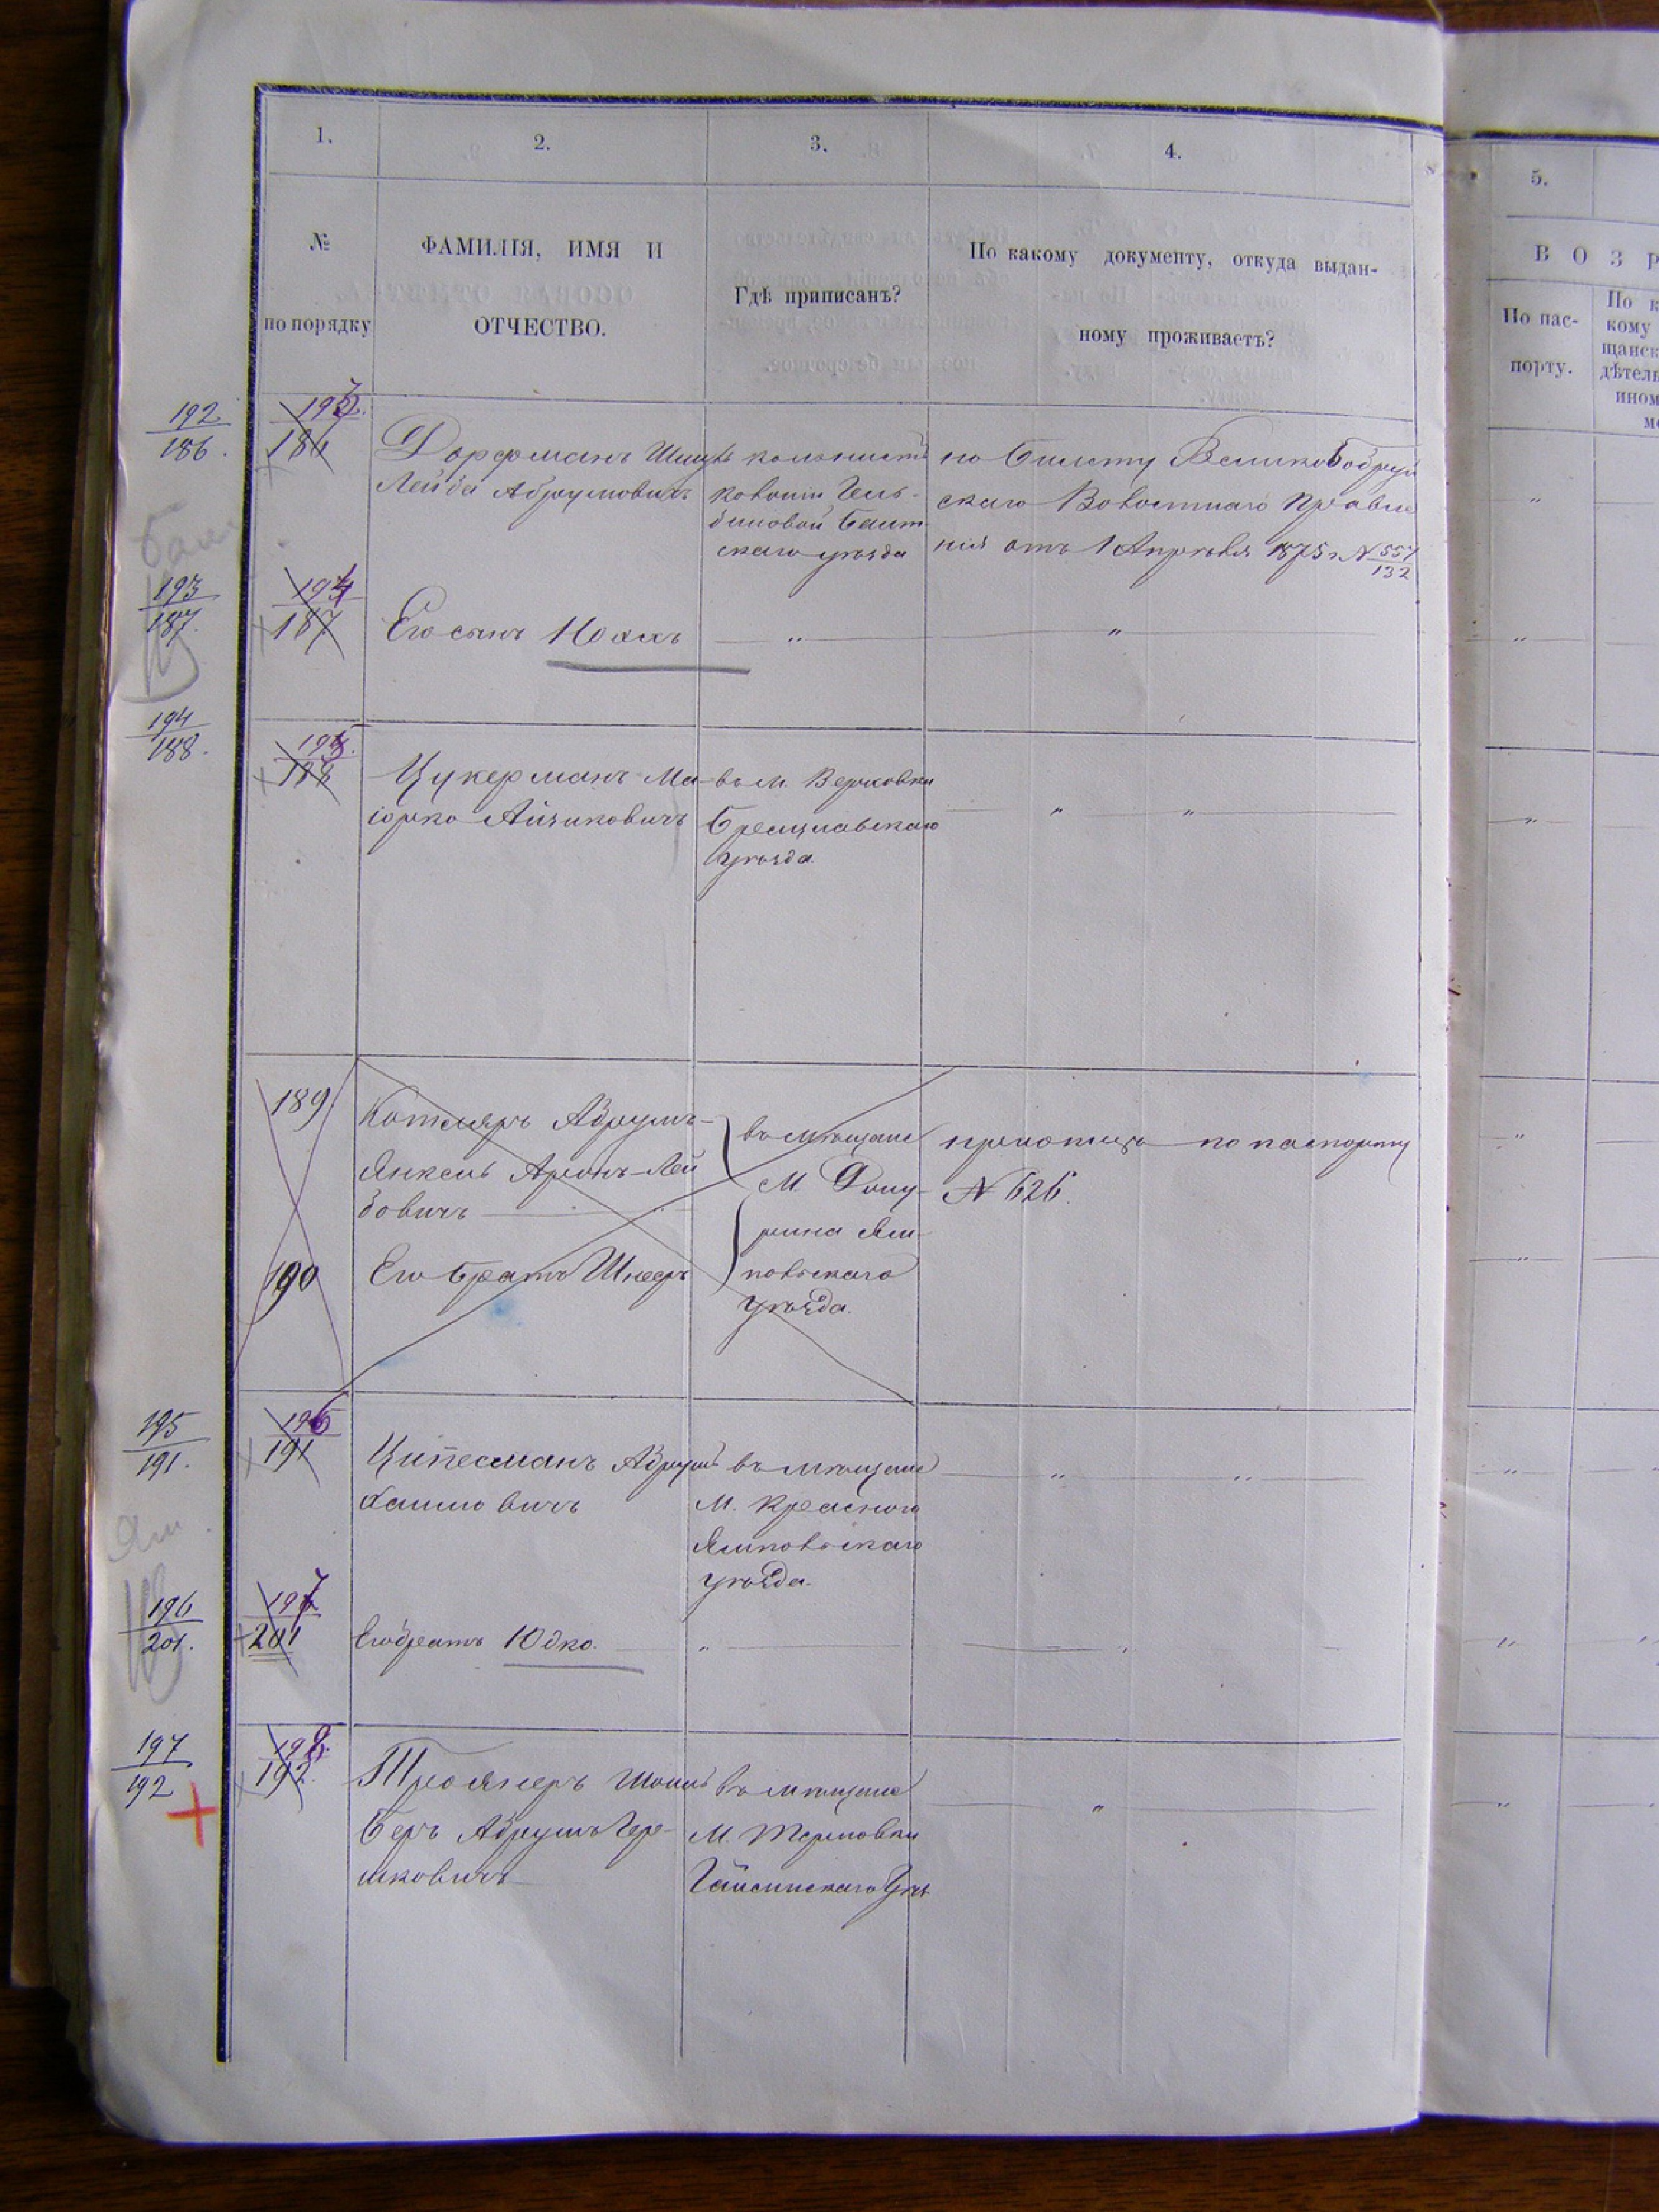 1.
2.
3.
4.
5.
№
по порядку
ФАМИЛІЯ, ИМЯ И
ОТЧЕСТВО.
Гдѣ приписанъ?
По какому документу, откуда выдан-
ному проживаетъ?
ВОЗР
По пас-
порту.
По к
кому
щанск
дѣтель
ином
192
186.
193
186
Дорфманъ
Лейба Абрумовичъ
колонистъ
колоніи
скаго уѣзда
по билету
скаго Волостнаго Правле
нія отъ 1 Апрѣля 1875 г. № 557
132
193
187.
194
187
Его сынъ
" "
194
188.
195
188
Цукерманъ Ма-
юрко Айзиковичъ
въ м. Верховки
Брацлавскаго
уѣзда
" "
189
Котляръ Абрумъ-
Янкель Аронъ-Лей
бовичъ
въ мѣщане
м.
уѣзда.
по паспорту
№ 626.
190
Его братъ Шнееръ
195
191.
196
191
Ципесманъ Абрумъ
Хаимовичъ
въ мѣщане
м. Красного
Ямпольскаго
уѣзда.
" "
Ям.
196
201.
197
201
Его братъ Юдко.
" "
197
192
198.
192.
Трояжеръ
Беръ Абрумъ Гер-
шковичъ
въ мѣщане
м. Терновки
Гайсинскаго Уѣз
"